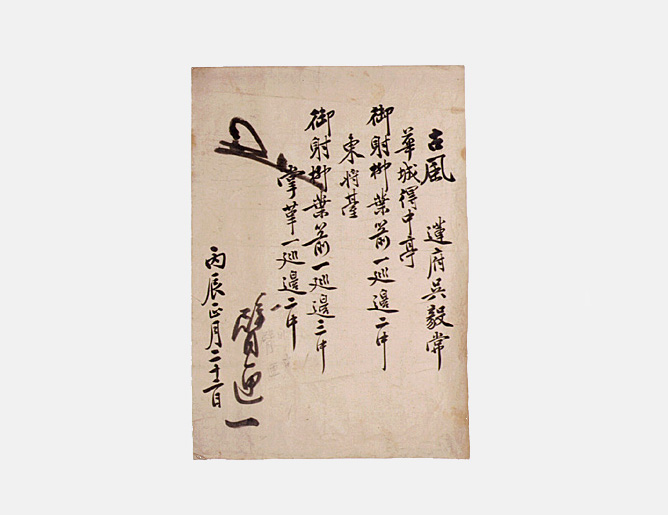 古風 府吳毅常
華城得中亭
御射柳葉箭一巡邊二中
東將臺
御射柳葉箭一巡邊三中
掌革一巡邊二中
一
丙辰正月二十二日